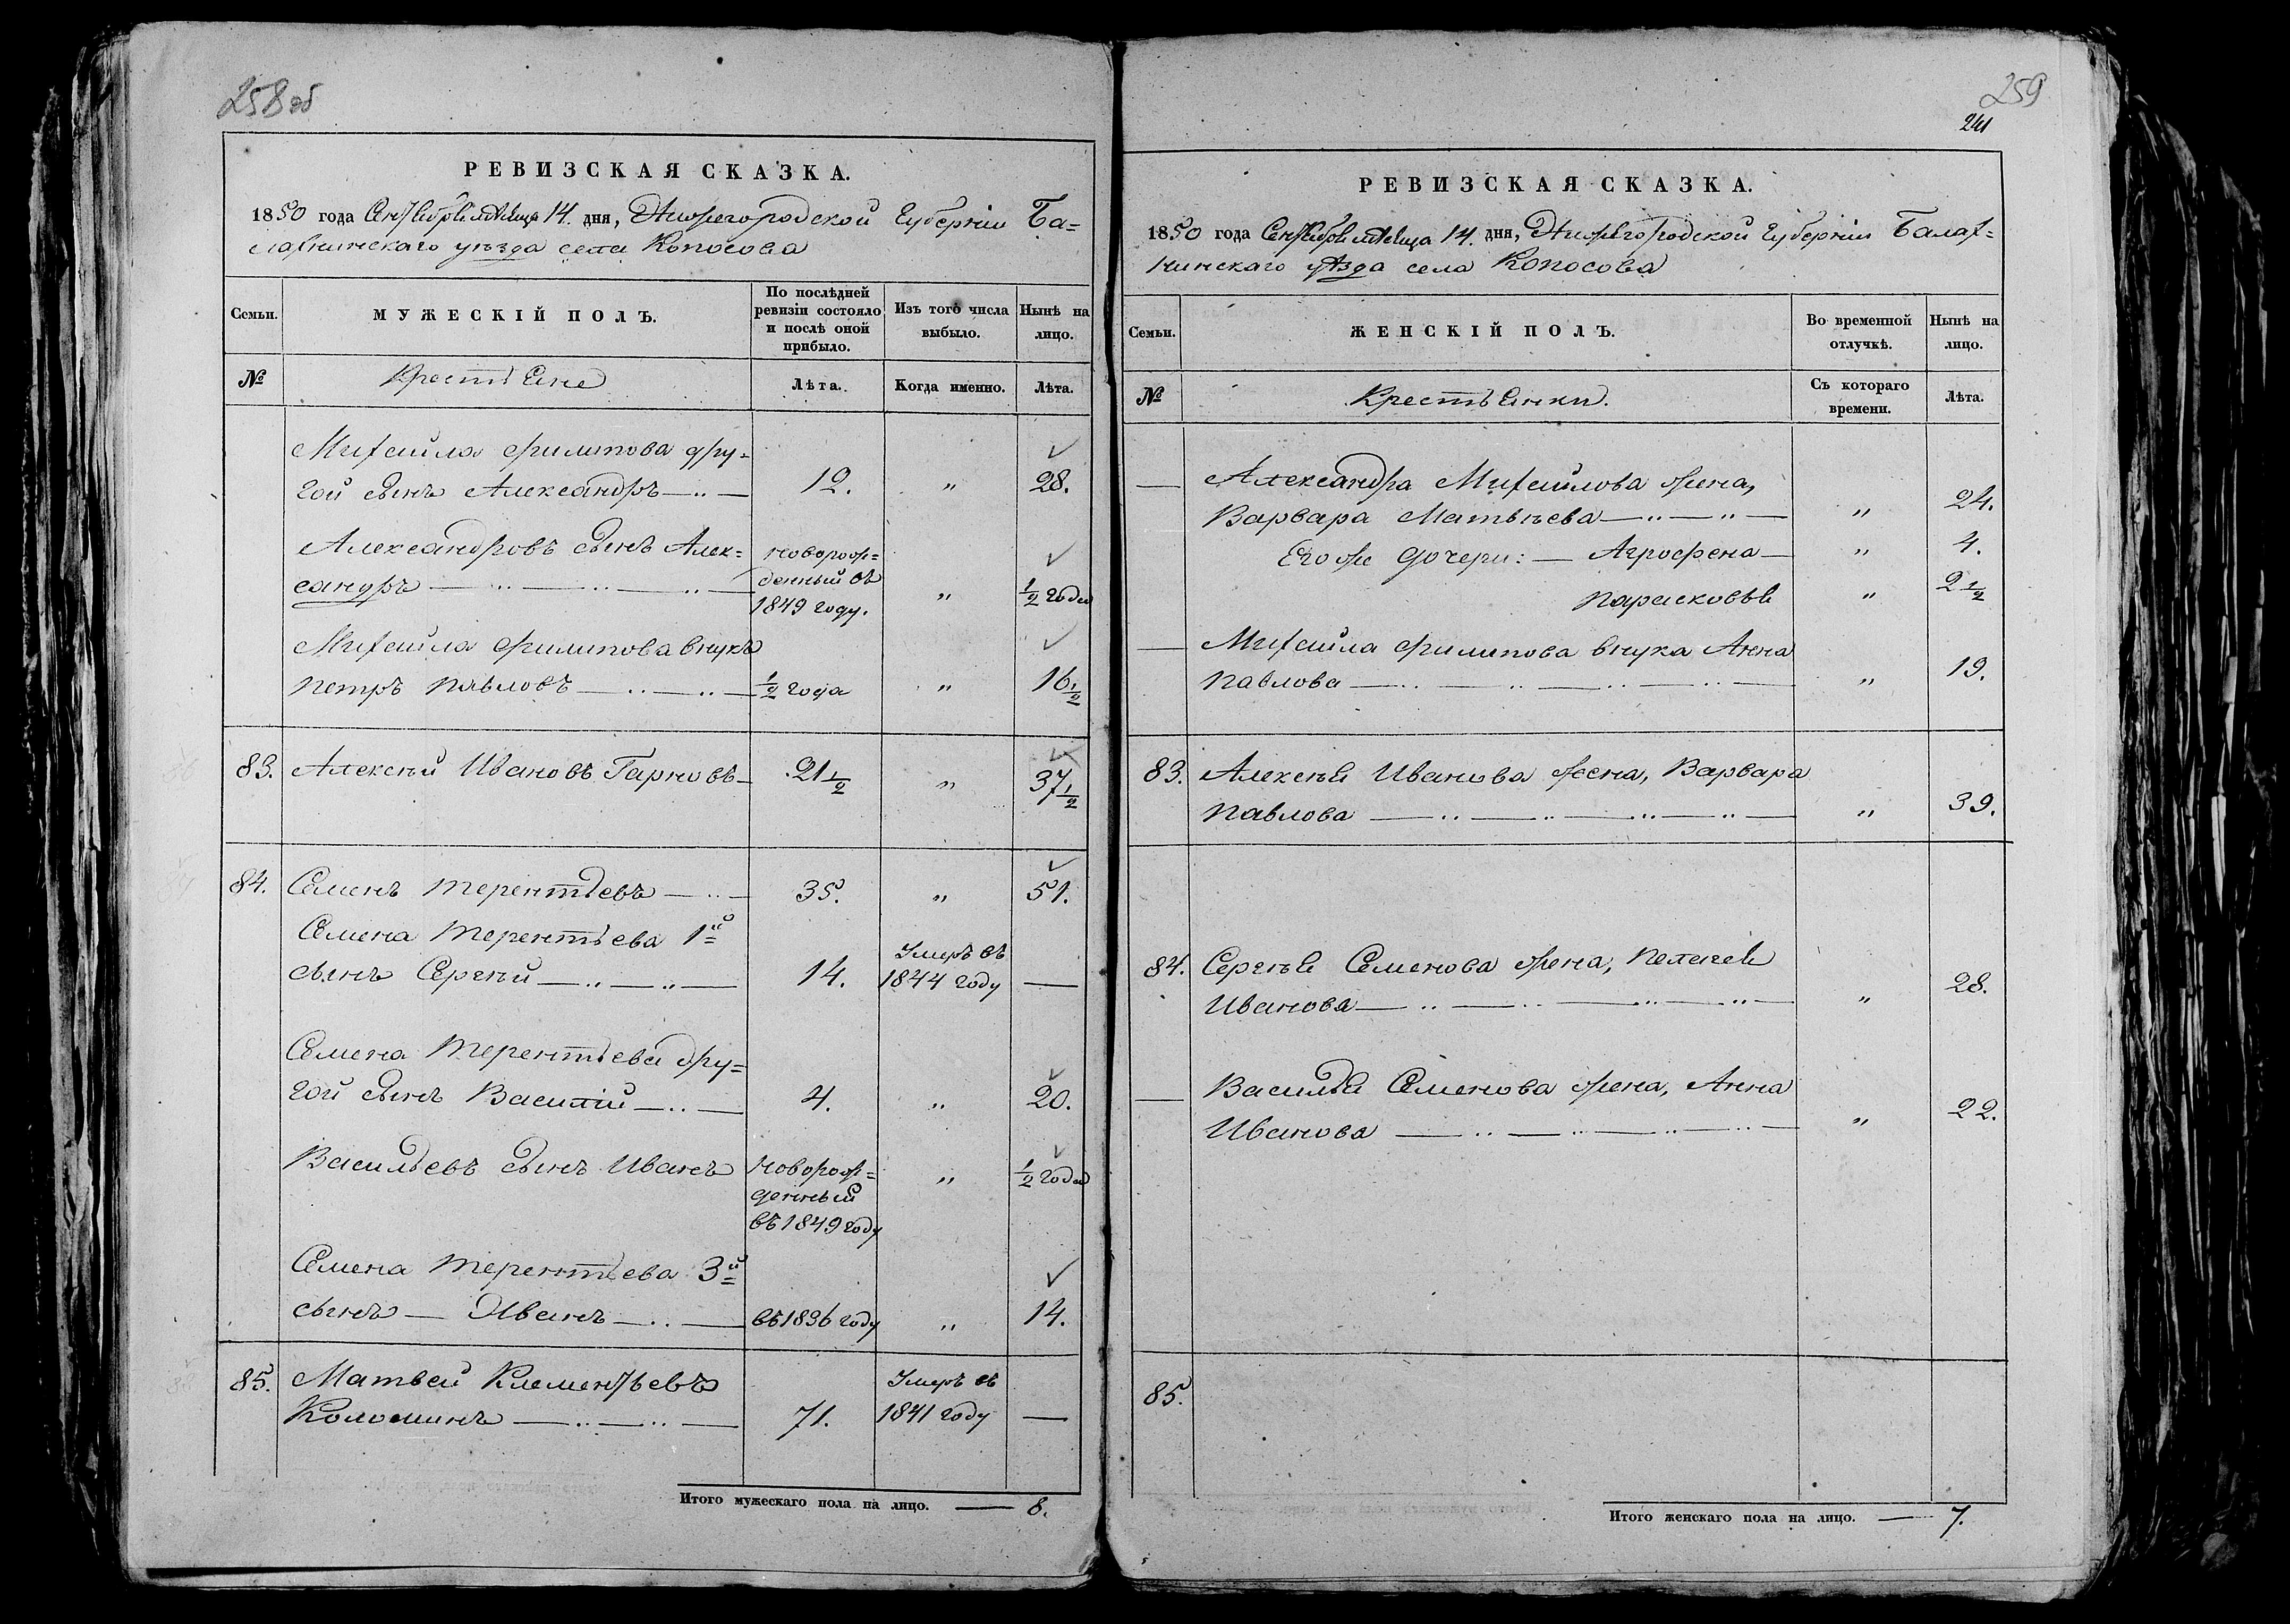 258 об
РЕВИЗСКАЯ СКАЗКА.
1850 года Сентября месяца 14. дня, Нижегородской Губернiи Ба=
лахнинскаго уѣзда села Копосова
Семьи.
МУЖЕСКIЙ ПОЛЪ.
По послѣдней
ревизiи состояло
и послѣ оной
прибыло.
Изъ того числа
выбыло.
Нынѣ на
лицо.
№
Крестьяне
Лѣта.
Когда именно.
Лѣта.
Михайла Филипова дру=
гой сынъ Александръ 12. " 28.
Александровъ сынъ Алек=
сандръ
новорож=
денный въ
1849 году. " 1/2 года
Михайла Филипова внукъ
Петръ Павловъ 1/2 года " 16 1/2
83. Алексѣй Ивановъ Гарновъ 21 1/2 " 37 1/2
84. Семенъ Терентьевъ 35. " 51.
Семена Терентьева 1й
сынъ Сергѣй 14.
Умеръ въ
1844 году —
Семена Терентьева дру=
гой сынъ Василiй 4. " 20.
Васильевъ сынъ Иванъ
новорож=
денный
въ 1849 году " 1/2 года
Семена Терентьева 3й
сынъ — Иванъ въ 1836 году " 14.
85. Матвей Клементьевъ
Коломинъ 71.
Умеръ въ
1841 году —
Итого мужескаго пола на лицо. — 8.
259
241
РЕВИЗСКАЯ СКАЗКА.
1850 года Сентября месяца 14. дня, Нижегородской Губернiи Балах=
нинскаго уѣзда села Копосова
Семьи.
ЖЕНСКIЙ ПОЛЪ.
Во временной
отлучкѣ.
Нынѣ на
лицо.
№
Крестьянки.
Съ котораго
времени.
Лѣта.
— Александра Михайлова жена,
Варвара Матвѣева " 24.
Его же дочери: — Агрофена — " 4.
Парасковья " 2 1/2
— Михайла Филипова внука Анна
Павлова " 19.
83. Алексѣя Иванова жена, Варвара
Павлова " 39.
84. Сергѣя Семенова жена, Пелагея
Иванова " 28.
— Василья Семенова жена, Анна
Иванова " 22.
85.
Итого женскаго пола на лицо. — 7.